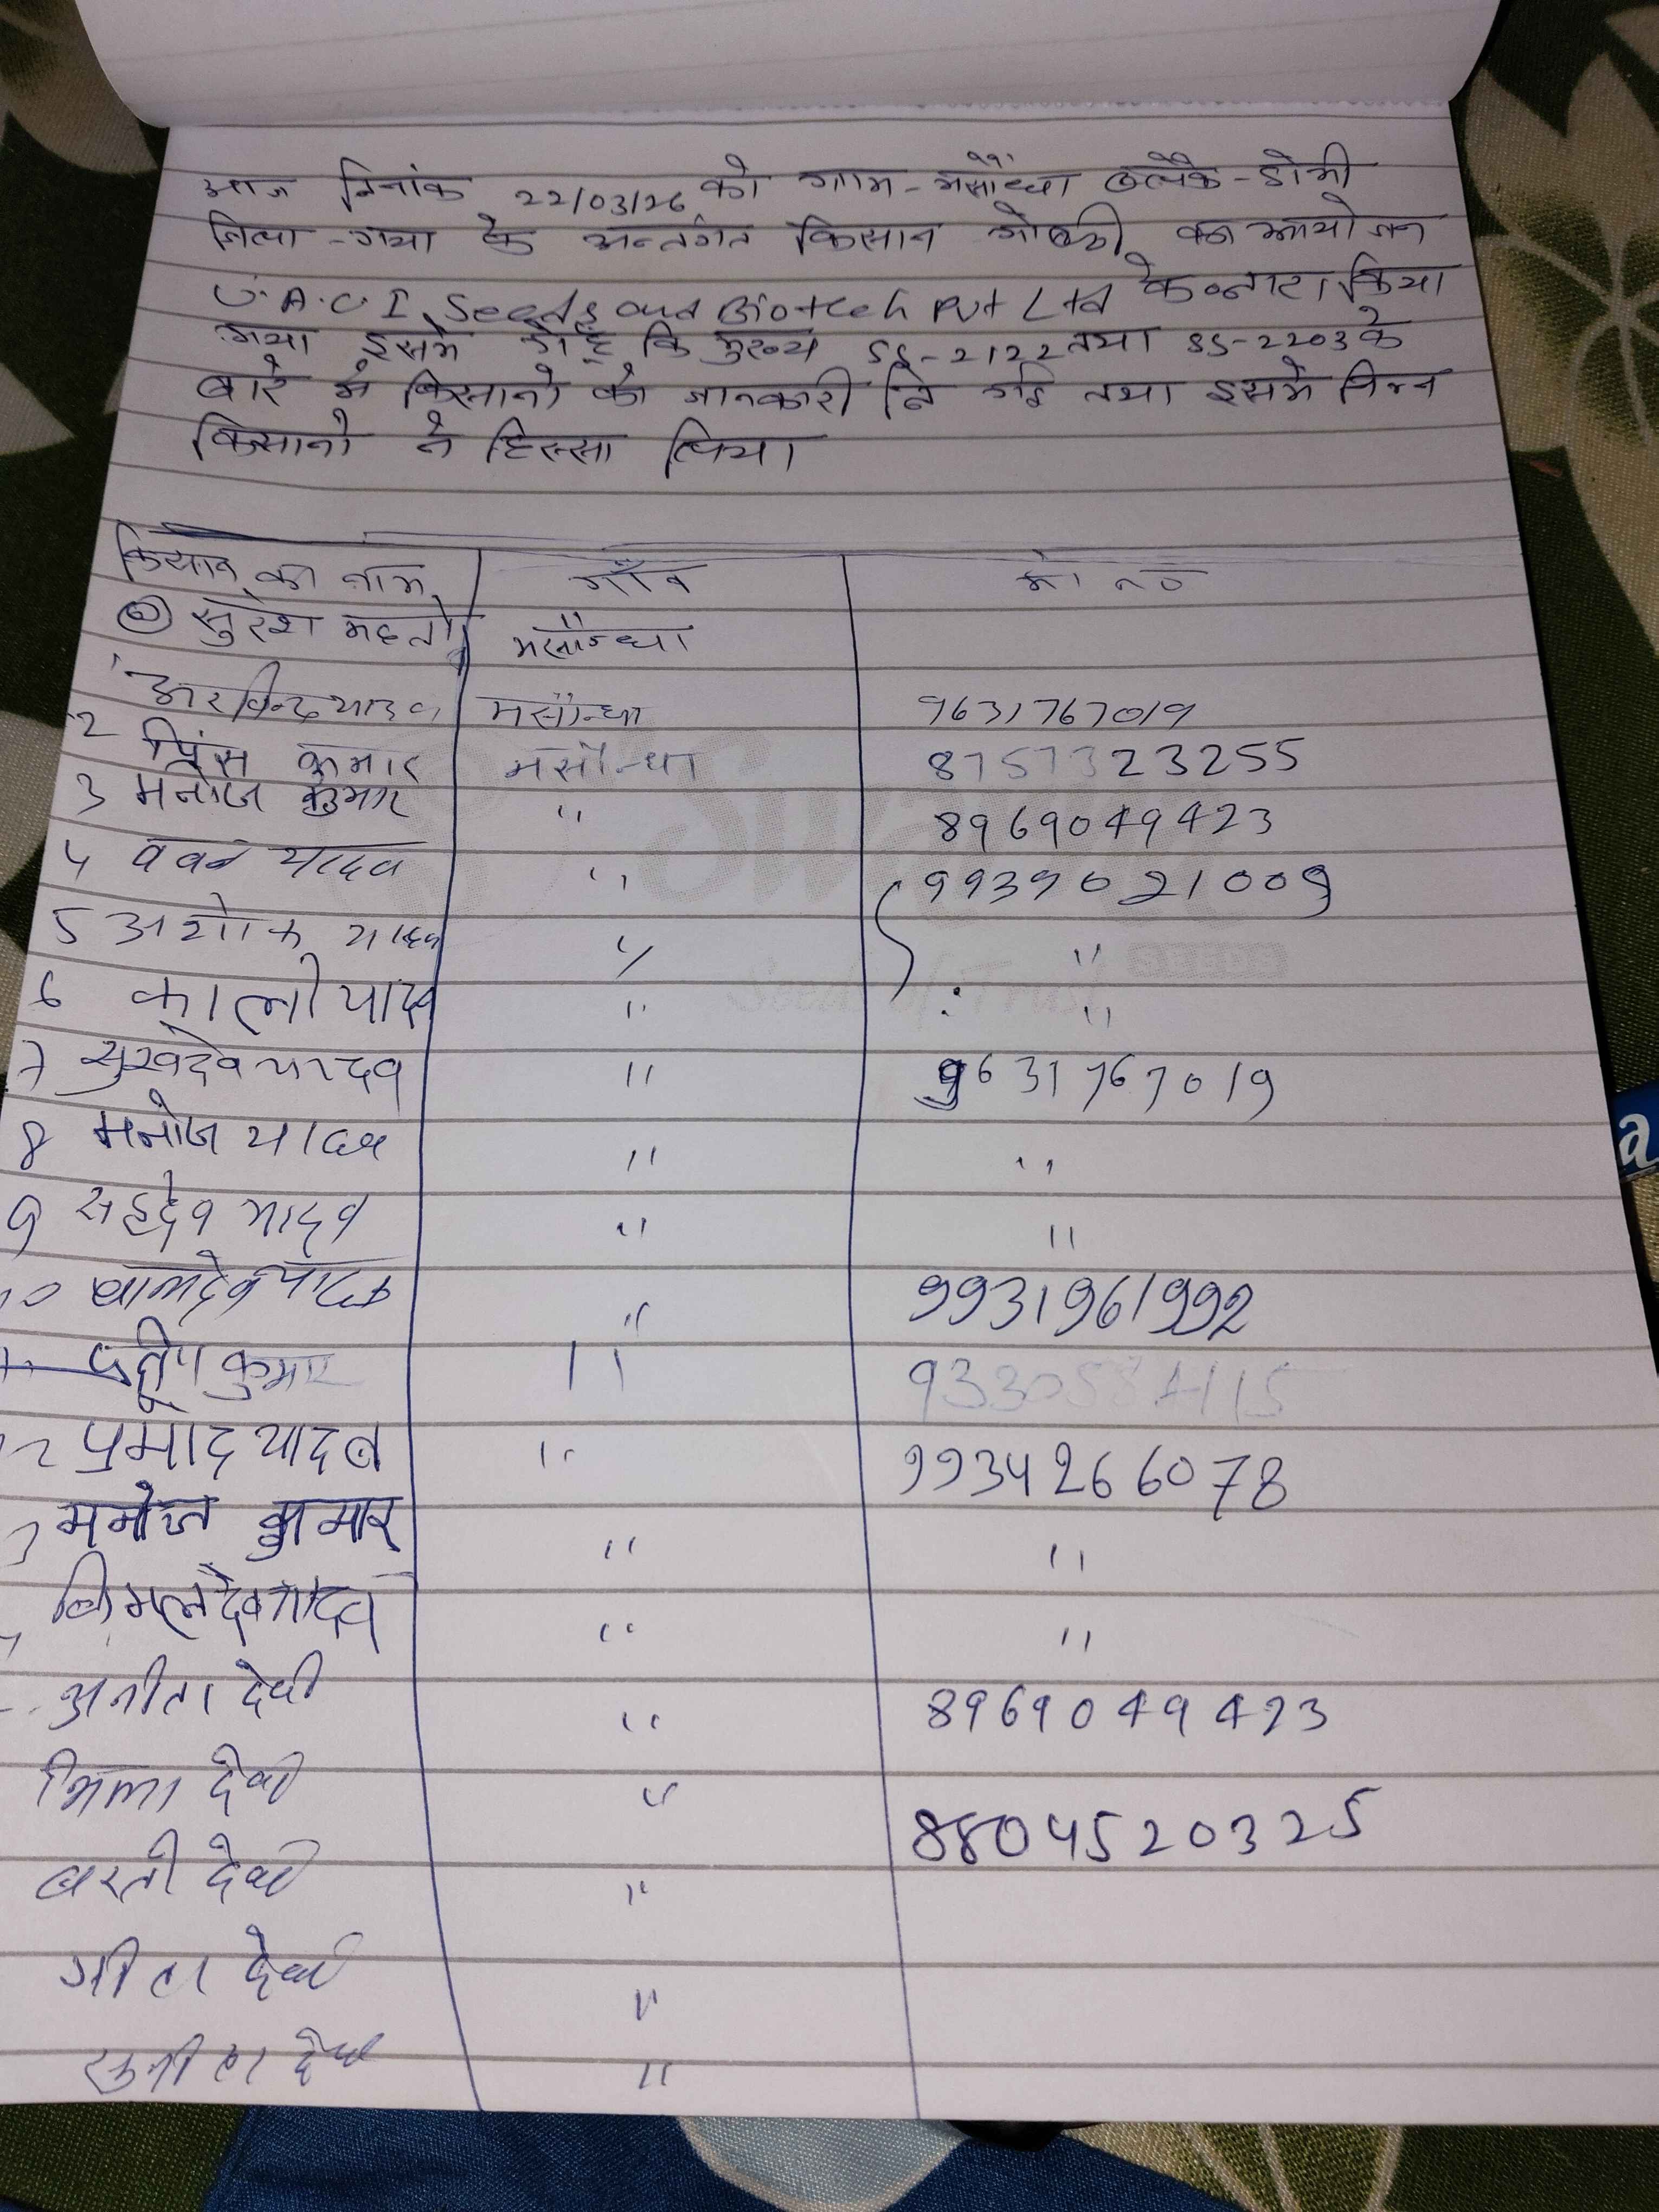 आज दिनांक 22/03/26 को ग्राम-मसौन्धा ब्लॉक-डोभी
जिला-गया के अन्तर्गत किसान गोष्ठी का आयोजन
U.A.C.I. Seeds and Biotech Pvt Ltd के द्वारा किया
गया इसमे कि मुख्य SS-2122 तथा SS-2203 के
बारे मे किसानो को जानकारी दि गई तथा इसमे निम्न
किसानो ने हिस्सा लिया
किसान का नाम गाँव मो० न०
सुरेश महतो मसौन्धा
1 अरविन्द यादव मसौन्धा 9631767019
2 प्रिंस कुमार मसौन्धा 8757323255
3 मनोज कुमार " 8969049423
4 यादव " 9939021009
5 अशोक यादव " "
6 यादव " "
7 सुखदेव यादव " 9631767019
8 मनोज यादव " "
9 सहदेव यादव " "
10 बामदेव यादव " 9931961992
कुमार "
12 प्रमोद यादव " 9934266078
मनोज कुमार " "
बिमलदेव यादव " "
अनीता देवी " 8969049423
देवी " 8804520325
देवी "
गीता देवी "
सुनीता देवी "
Swati
SEEDS
Seed of Trust
a